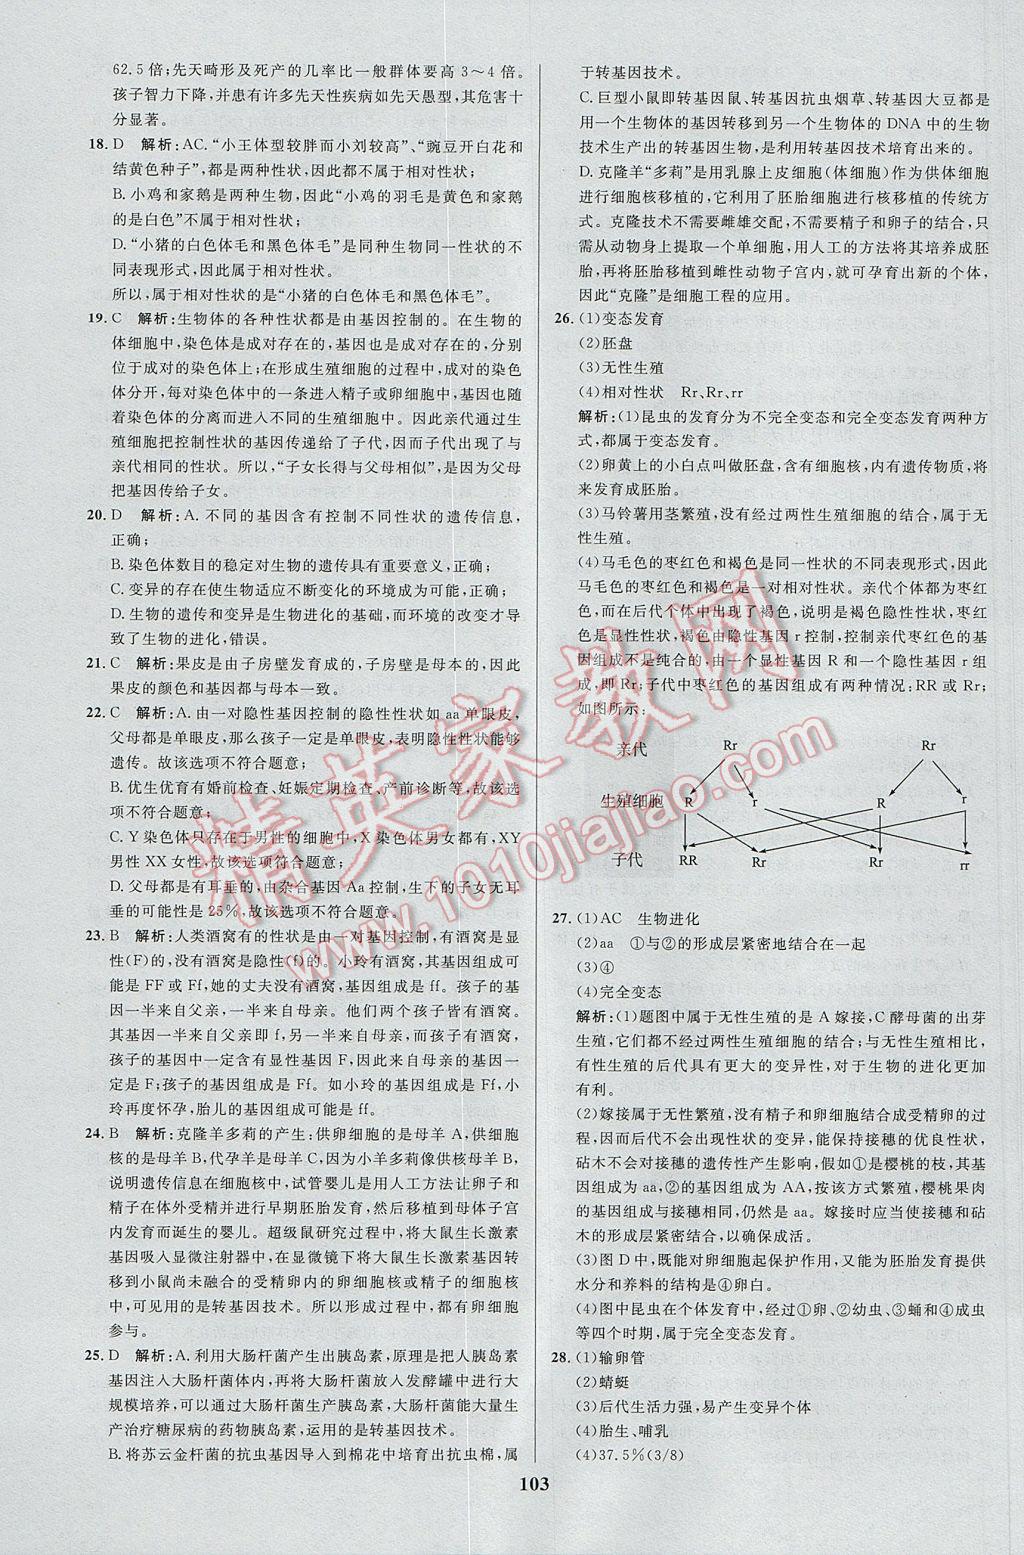 62.5倍;先天畸形及死产的几率比一般群体要高3～4倍。
孩子智力下降,并患有许多先天性疾病如先天愚型,其危害十
分显著。
18. D 解析:AC.“小王体型较胖而小刘较高”、“豌豆开白花和
结黄色种子”,都是两种性状,因此都不属于相对性状;
B.小鸡和家鹅是两种生物,因此“小鸡的羽毛是黄色和家鹅
的是白色”不属于相对性状;
D.“小猪的白色体毛和黑色体毛”是同种生物同一性状的不
同表现形式,因此属于相对性状。
所以,属于相对性状的是“小猪的白色体毛和黑色体毛”。
19. C 解析:生物体的各种性状都是由基因控制的。在生物的
体细胞中,染色体是成对存在的,基因也是成对存在的,分别
位于成对的染色体上;在形成生殖细胞的过程中,成对的染色
体分开,每对染色体中的一条进入精子或卵细胞中,基因也随
着染色体的分离而进入不同的生殖细胞中。因此亲代通过生
殖细胞把控制性状的基因传递给了子代,使子代出现了与
亲代相同的性状。所以,“子女长得与父母相似”,是因为父母
把基因传给子女。
20. D 解析:A.不同的基因含有控制不同性状的遗传信息,
正确;
B.染色体数目的稳定对生物的遗传具有重要意义,正确;
C.变异的存在使生物适应不断变化的环境成为可能,正确;
D.生物的遗传和变异是生物进化的基础,而环境的改变才导
致了生物的进化,错误。
21. C 解析:果皮是由子房壁发育成的,子房壁是母本的,因此
果皮的颜色和基因都与母本一致。
22. C 解析:A.由一对隐性基因控制的隐性性状如aa单眼皮,
父母都是单眼皮,那么孩子一定是单眼皮,表明隐性性状能够
遗传。故该选项不符合题意;
B.优生优育有婚前检查、妊娠定期检查、产前诊断等,故该选
项不符合题意;
C.Y染色体只存在于男性的细胞中,X染色体男女都有,XY
男性XX女性,故该选项符合题意;
D.父母都是有耳垂的,由杂合基因Aa控制,生下的子女无耳
垂的可能性是25%,故该选项不符合题意。
23. B 解析:人类酒窝有的性状是由一对基因控制,有酒窝是显
性(F)的,没有酒窝是隐性(f)的。小玲有酒窝,其基因组成可
能是FF或Ff,她的丈夫没有酒窝,其基因组成是ff。孩子的
基因一半来自父亲,一半来自母亲。他们两个孩子都有酒窝,
其基因一半来自父亲即f,另一半来自母亲,而孩子有酒窝,
孩子的基因中一定含有显性基因F,因此来自母亲的基因一
定是F;孩子的基因组成是Ff。如小玲的基因组成是Ff,小
玲再度怀孕,胎儿的基因组成可能是ff。
24. B 解析:克隆羊多莉的产生:供卵细胞的是母羊A,供细胞
核的是母羊B、代孕羊是母羊C,因为小羊多莉像供核母羊B,
说明遗传信息在细胞核中,试管婴儿是用人工方法让卵子和
精子在体外受精并进行早期胚胎发育,然后移植到母体子宫
内发育而诞生的婴儿。超级鼠研究过程中,将大鼠生长激素
基因吸入显微注射器中,在显微镜下将大鼠生长激素基因转
移到小鼠尚未融合的受精卵内的卵细胞核或精子的细胞核
中,可见用的是转基因技术。所以形成过程中,都有卵细胞
参与。
25. D 解析:A.利用大肠杆菌产生出胰岛素,原理是把人胰岛素
基因注入大肠杆菌体内,再将大肠杆菌放入发酵罐中进行大
规模培养,可以通过大肠杆菌生产胰岛素,大肠杆菌能大量生
产治疗糖尿病的药物胰岛素,运用的是转基因技术。
B.将苏云金杆菌的抗虫基因导入到棉花中培育出抗虫棉,属
于转基因技术。
C.巨型小鼠即转基因鼠、转基因抗虫烟草、转基因大豆都是
用一个生物体的基因转移到另一个生物体的DNA中的生物
技术生产出的转基因生物,是利用转基因技术培育出来的。
D.克隆羊“多莉”是用乳腺上皮细胞(体细胞)作为供体细胞
进行细胞核移植的,它利用了胚胎细胞进行核移植的传统方
式。克隆技术不需要雌雄交配,不需要精子和卵子的结合,只
需从动物身上提取一个单细胞,用人工的方法将其培养成胚
胎,再将胚胎移植到雌性动物子宫内,就可孕育出新的个体,
因此“克隆”是细胞工程的应用。
26. (1)变态发育
(2)胚盘
(3)无性生殖
(4)相对性状 Rr、Rr、rr
解析:(1)昆虫的发育分为不完全变态和完全变态发育两种方
式,都属于变态发育。
(2)卵黄上的小白点叫做胚盘,含有细胞核,内有遗传物质,将
来发育成胚胎。
(3)马铃薯用茎繁殖,没有经过两性生殖细胞的结合,属于无
性生殖。
(4)马毛色的枣红色和褐色是同一性状的不同表现形式,因此
马毛色的枣红色和褐色是一对相对性状。亲代个体都为枣红
色,而在后代个体中出现了褐色,说明是褐色隐性性状,枣红
色是显性性状,褐色由隐性基因r控制,控制亲代枣红色的基
因组成不是纯合的,由一个显性基因R和一个隐性基因r组
成,即Rr;子代中枣红色的基因组成有两种情况;RR或Rr。
如图所示:
亲代 Rr Rr
生殖细胞 R r R r
子代 RR Rr Rr rr
27. (1)AC 生物进化
(2)aa ①与②的形成层紧密地结合在一起
(3)④
(4)完全变态
解析:(1)题图中属于无性生殖的是A嫁接,C酵母菌的出芽
生殖,它们都不经过两性生殖细胞的结合;与无性生殖相比,
有性生殖的后代具有更大的变异性,对于生物的进化更加
有利。
(2)嫁接属于无性繁殖,没有精子和卵细胞结合成受精卵的过
程,因而后代不出现性状的变异,能保持接穗的优良性状,
砧木不会对接穗的遗传性产生影响,假设①是樱桃的枝,其基
因组成为aa,②的基因组成为AA,按该方式繁殖,樱桃果肉
的基因组成与接穗相同,仍然是aa。嫁接时应当使接穗和砧
木的形成层紧密结合,以确保成活。
(3)图D中,既能对卵细胞起保护作用,又能为胚胎发育提供
水分和养料的结构是④卵白。
(4)图中昆虫在个体发育中,经过①卵、②幼虫、③蛹和④成虫
等四个时期,属于完全变态发育。
28. (1)输卵管
(2)蜻蜓
(3)后代生活力强,易产生变异个体
(4)胎生、哺乳
(4)37.5%(3/8)
103
精英家教网
www.1010jiajiao.com